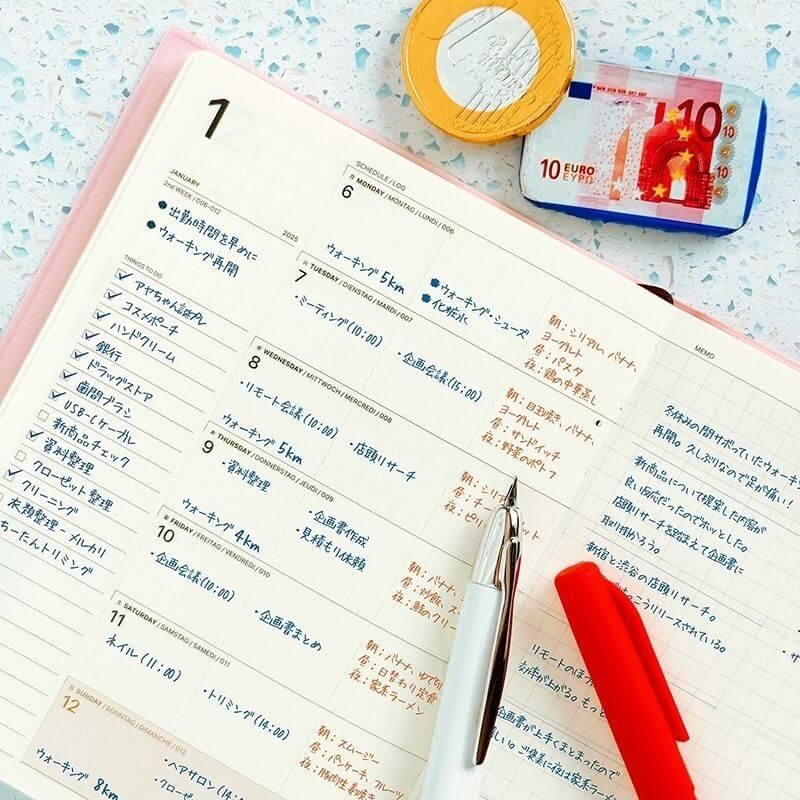 1
JANUARY
2nd WEEK / 006-012
2025
• 出勤時間を早めに
• ウォーキング再開
THINGS TO DO
アヤちゃん誕プレ
コスメポーチ
ハンドクリーム
銀行
ドラッグストア
歯間ブラシ
USB-Cケーブル
新商品チェック
資料整理
クローゼット整理
クリーニング
衣類整理・メルカリ
ちーたんトリミング
SCHEDULE / LOG
6 月 MONDAY / MONTAG / LUNDI / 006
ウォーキング 5km
ウォーキング・シューズ
化粧水
朝：シリアル、バナナ、
ヨーグルト
昼：パスタ
夜：鶏の中華蒸し
7 火 TUESDAY / DIENSTAG / MARDI / 007
・ミーティング(10:00)
・企画会議(15:00)
朝：目玉焼き、バナナ、
ヨーグルト
昼：サンドイッチ
夜：野菜のポトフ
8 水 WEDNESDAY / MITTWOCH / MERCREDI / 008
・リモート会議(10:00)
ウォーキング 5km
・店頭リサーチ
朝：シリ
昼：チ
夜：ピリ
ット
9 木 THURSDAY / DONNERSTAG / JEUDI / 009
・資料整理
ウォーキング 4km
・企画書作成
・見積もり依頼
朝：バナナ、
昼：炒飯、ス
夜：鮭のクリー
10 金 FRIDAY / FREITAG / VENDREDI / 010
・企画会議(10:00)
・企画書まとめ
朝：バナナ、ゆで卵
昼：日替わり定食
夜：家系ラーメン
11 土 SATURDAY / SAMSTAG / SAMEDI / 011
ネイル(11:00)
・トリミング(14:00)
朝：スムージー
昼：パンケーキ、フルーツ
夜：豚肉生姜焼き
12 日 SUNDAY / SONNTAG / DIMANCHE / 012
ウォーキング 8km
・ヘアサロン(14:00)
・クローゼ
MEMO
冬休みの間サボっていたウォーキン
再開。久しぶりなので足が痛い！
新商品について提案した内容が
良い反応だったのでホッとした。
店頭リサーチを踏まえて企画書に
取り掛かろう。
新宿と渋谷の店頭リサーチ。
こうリリースされている。
リモートのほう
効率が上がる。もっと
企画書が上手くまとまったので
嬉しい。ご褒美に夜は家系ラーメン
10 EURO
ΕΥΡΩ
10
10
10